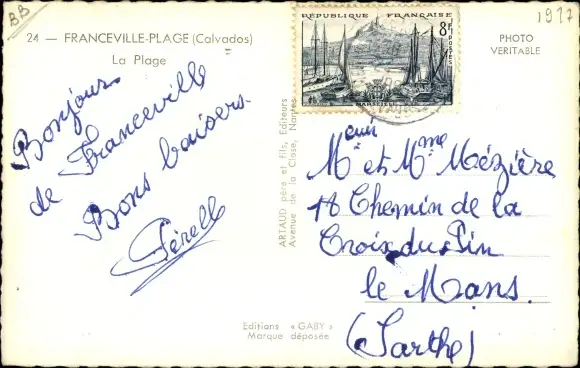 BB
1977
24 — FRANCEVILLE-PLAGE (Calvados)
La Plage
PHOTO
VERITABLE
RÉPUBLIQUE FRANÇAISE
8F
POSTES
MARSEILLE
Bonjour
de Franceville
Bons baisers.
Pérelle
ARTAUD père et fils, Editeurs
Avenue de la Close, Nantes
Editions « GABY »
Marque déposée
M et Mme Mézière
18 Chemin de la
Croix du Pin
le Mans.
(Sarthe)